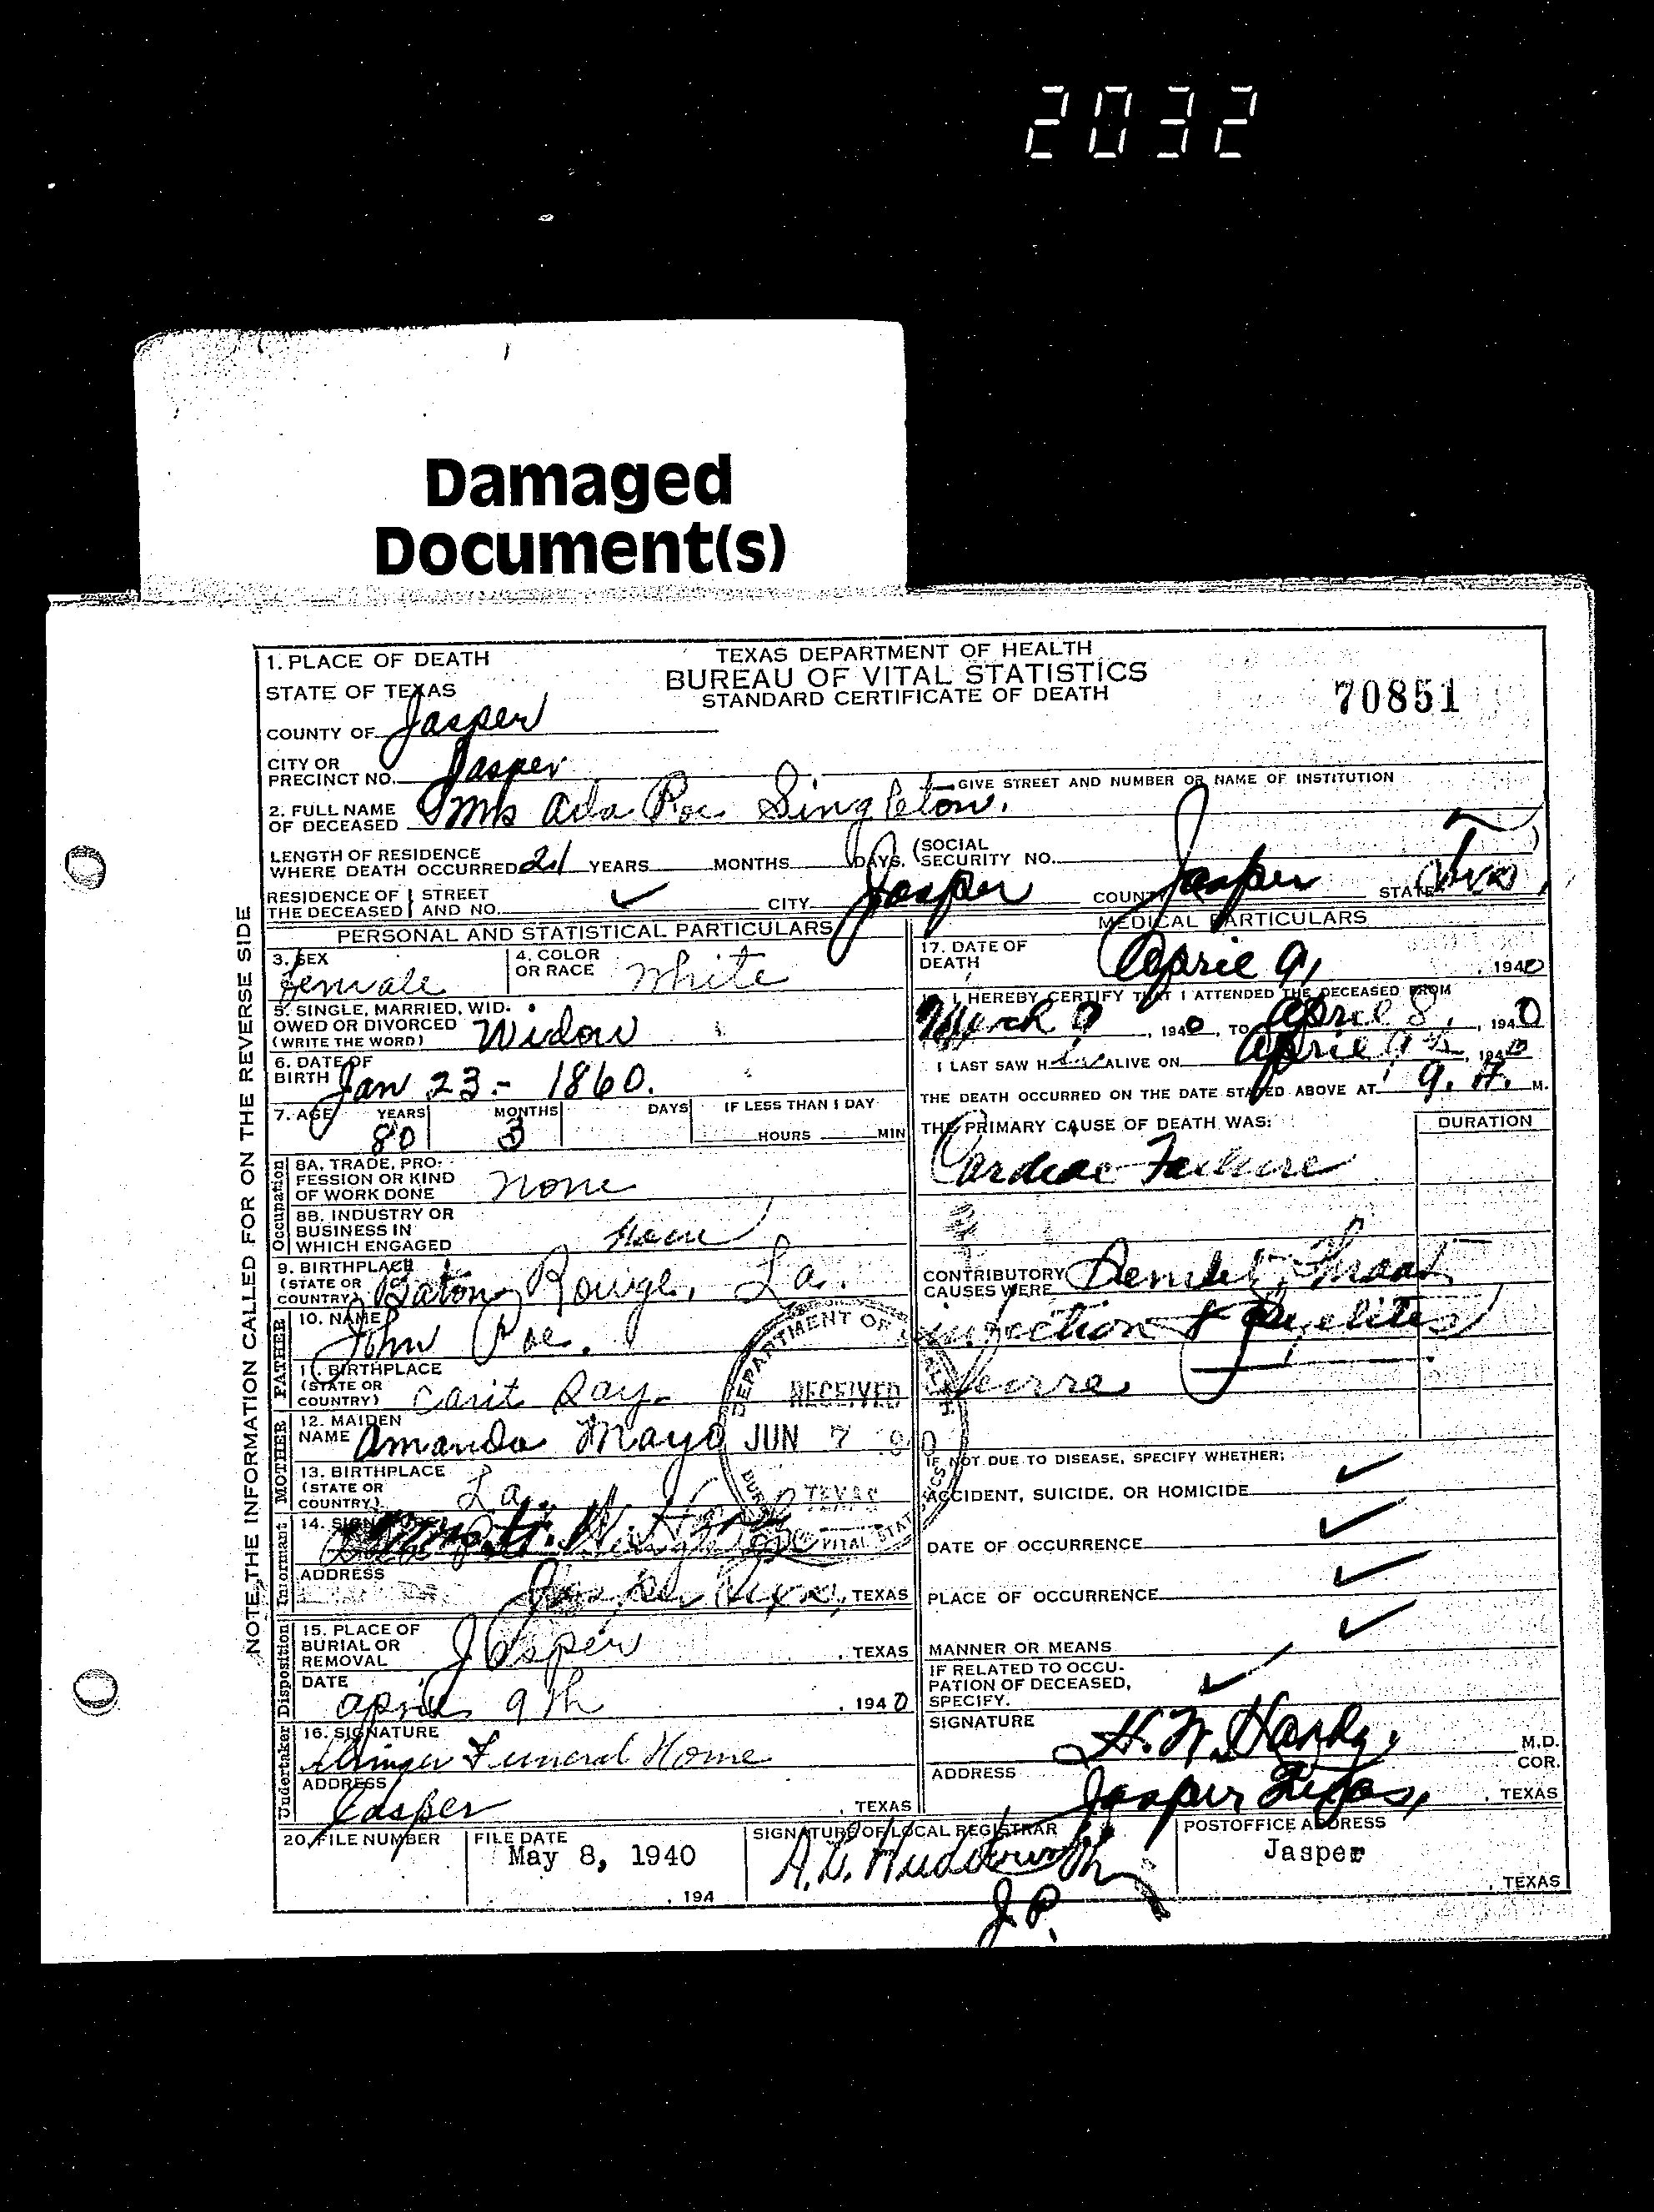 2032
Damaged
Document(s)
NOTE THE INFORMATION CALLED FOR ON THE REVERSE SIDE
1. PLACE OF DEATH
STATE OF TEXAS
TEXAS DEPARTMENT OF HEALTH
BUREAU OF VITAL STATISTICS
STANDARD CERTIFICATE OF DEATH
70851
COUNTY OF Jasper
CITY OR PRECINCT NO. Jasper
GIVE STREET AND NUMBER OR NAME OF INSTITUTION
2. FULL NAME OF DECEASED Mrs Ada Roe Singleton.
LENGTH OF RESIDENCE WHERE DEATH OCCURRED 21 YEARS MONTHS DAYS. (SOCIAL SECURITY NO.
RESIDENCE OF THE DECEASED STREET AND NO. CITY Jasper COUNTY Jasper STATE
PERSONAL AND STATISTICAL PARTICULARS
3. SEX female
4. COLOR OR RACE White
5. SINGLE, MARRIED, WIDOWED OR DIVORCED (WRITE THE WORD) Widow
6. DATE OF BIRTH Jan 23 - 1860.
7. AGE YEARS MONTHS DAYS IF LESS THAN 1 DAY
80 3 HOURS MIN
Occupation
8A. TRADE, PROFESSION OR KIND OF WORK DONE None
8B. INDUSTRY OR BUSINESS IN WHICH ENGAGED
9. BIRTHPLACE (STATE OR COUNTRY) Baton Rouge, La.
FATHER
10. NAME John Roe.
11. BIRTHPLACE (STATE OR COUNTRY) Cant Say
MOTHER
12. MAIDEN NAME Amanda Mayo
13. BIRTHPLACE (STATE OR COUNTRY) La.
DEPARTMENT OF
RECEIVED
JUN 7
TEXAS
Informant
14. SIGNATURE
ADDRESS Jasper , TEXAS
Disposition
15. PLACE OF BURIAL OR REMOVAL Jasper , TEXAS
DATE April 9th , 1940
Undertaker
16. SIGNATURE Funeral Home
ADDRESS Jasper , TEXAS
MEDICAL PARTICULARS
17. DATE OF DEATH April 9, 1940
I HEREBY CERTIFY THAT I ATTENDED THE DECEASED FROM
March 9, 1940, TO April 8, 1940
I LAST SAW H ALIVE ON April , 1940
THE DEATH OCCURRED ON THE DATE STATED ABOVE AT 9. A. M.
THE PRIMARY CAUSE OF DEATH WAS: DURATION
Cardiac Failure
CONTRIBUTORY CAUSES WERE
infection & Pyelitis
IF NOT DUE TO DISEASE, SPECIFY WHETHER:
ACCIDENT, SUICIDE, OR HOMICIDE
DATE OF OCCURRENCE
PLACE OF OCCURRENCE
MANNER OR MEANS
IF RELATED TO OCCUPATION OF DECEASED, SPECIFY.
SIGNATURE H. W. Hardy, M.D. COR.
ADDRESS Jasper Texas, , TEXAS
20. FILE NUMBER
FILE DATE May 8, 1940 , 194
SIGNATURE OF LOCAL REGISTRAR
J.P.
POSTOFFICE ADDRESS
Jasper
, TEXAS